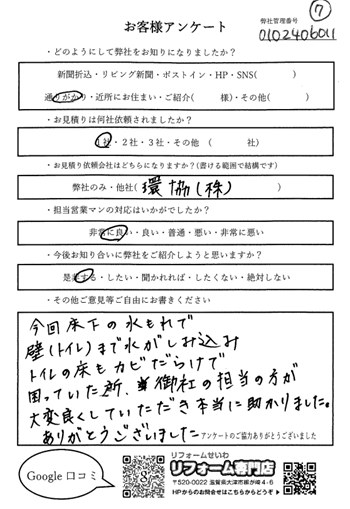 ⑦
お客様アンケート
弊社管理番号
0102406011
・どのようにして弊社をお知りになりましたか？
新聞折込・リビング新聞・ポストイン・HP・SNS(　　　)
通りがかり・近所にお住まい・ご紹介(　　　様)・その他(　　　)
・お見積りは何社依頼されましたか？
1社・2社・3社・その他　(　　　社)
・お見積り依頼会社はどちらになりますか？(書ける範囲で結構です)
弊社のみ・他社( 環協(株) )
・担当営業マンの対応はいかがでしたか？
非常に良い・良い・普通・悪い・非常に悪い
・今後お知り合いに弊社をご紹介しようと思いますか？
是非する・したい・聞かれれば・したくない・絶対しない
・その他ご意見等ご自由にお書きください
今回床下の水もれで
壁(トイレ)まで水がしみ込み
トイレの床もカビだらけで
困っていた所、御社の担当の方が
大変良くしていただき本当に助かりました。
ありがとうございました
アンケートのご協力ありがとうございました
Google 口コミ
リフォームせいわ
リフォーム専門店
〒520-0022 滋賀県大津市柳が崎4-6
HPからのお問合せはこちらからどうぞ